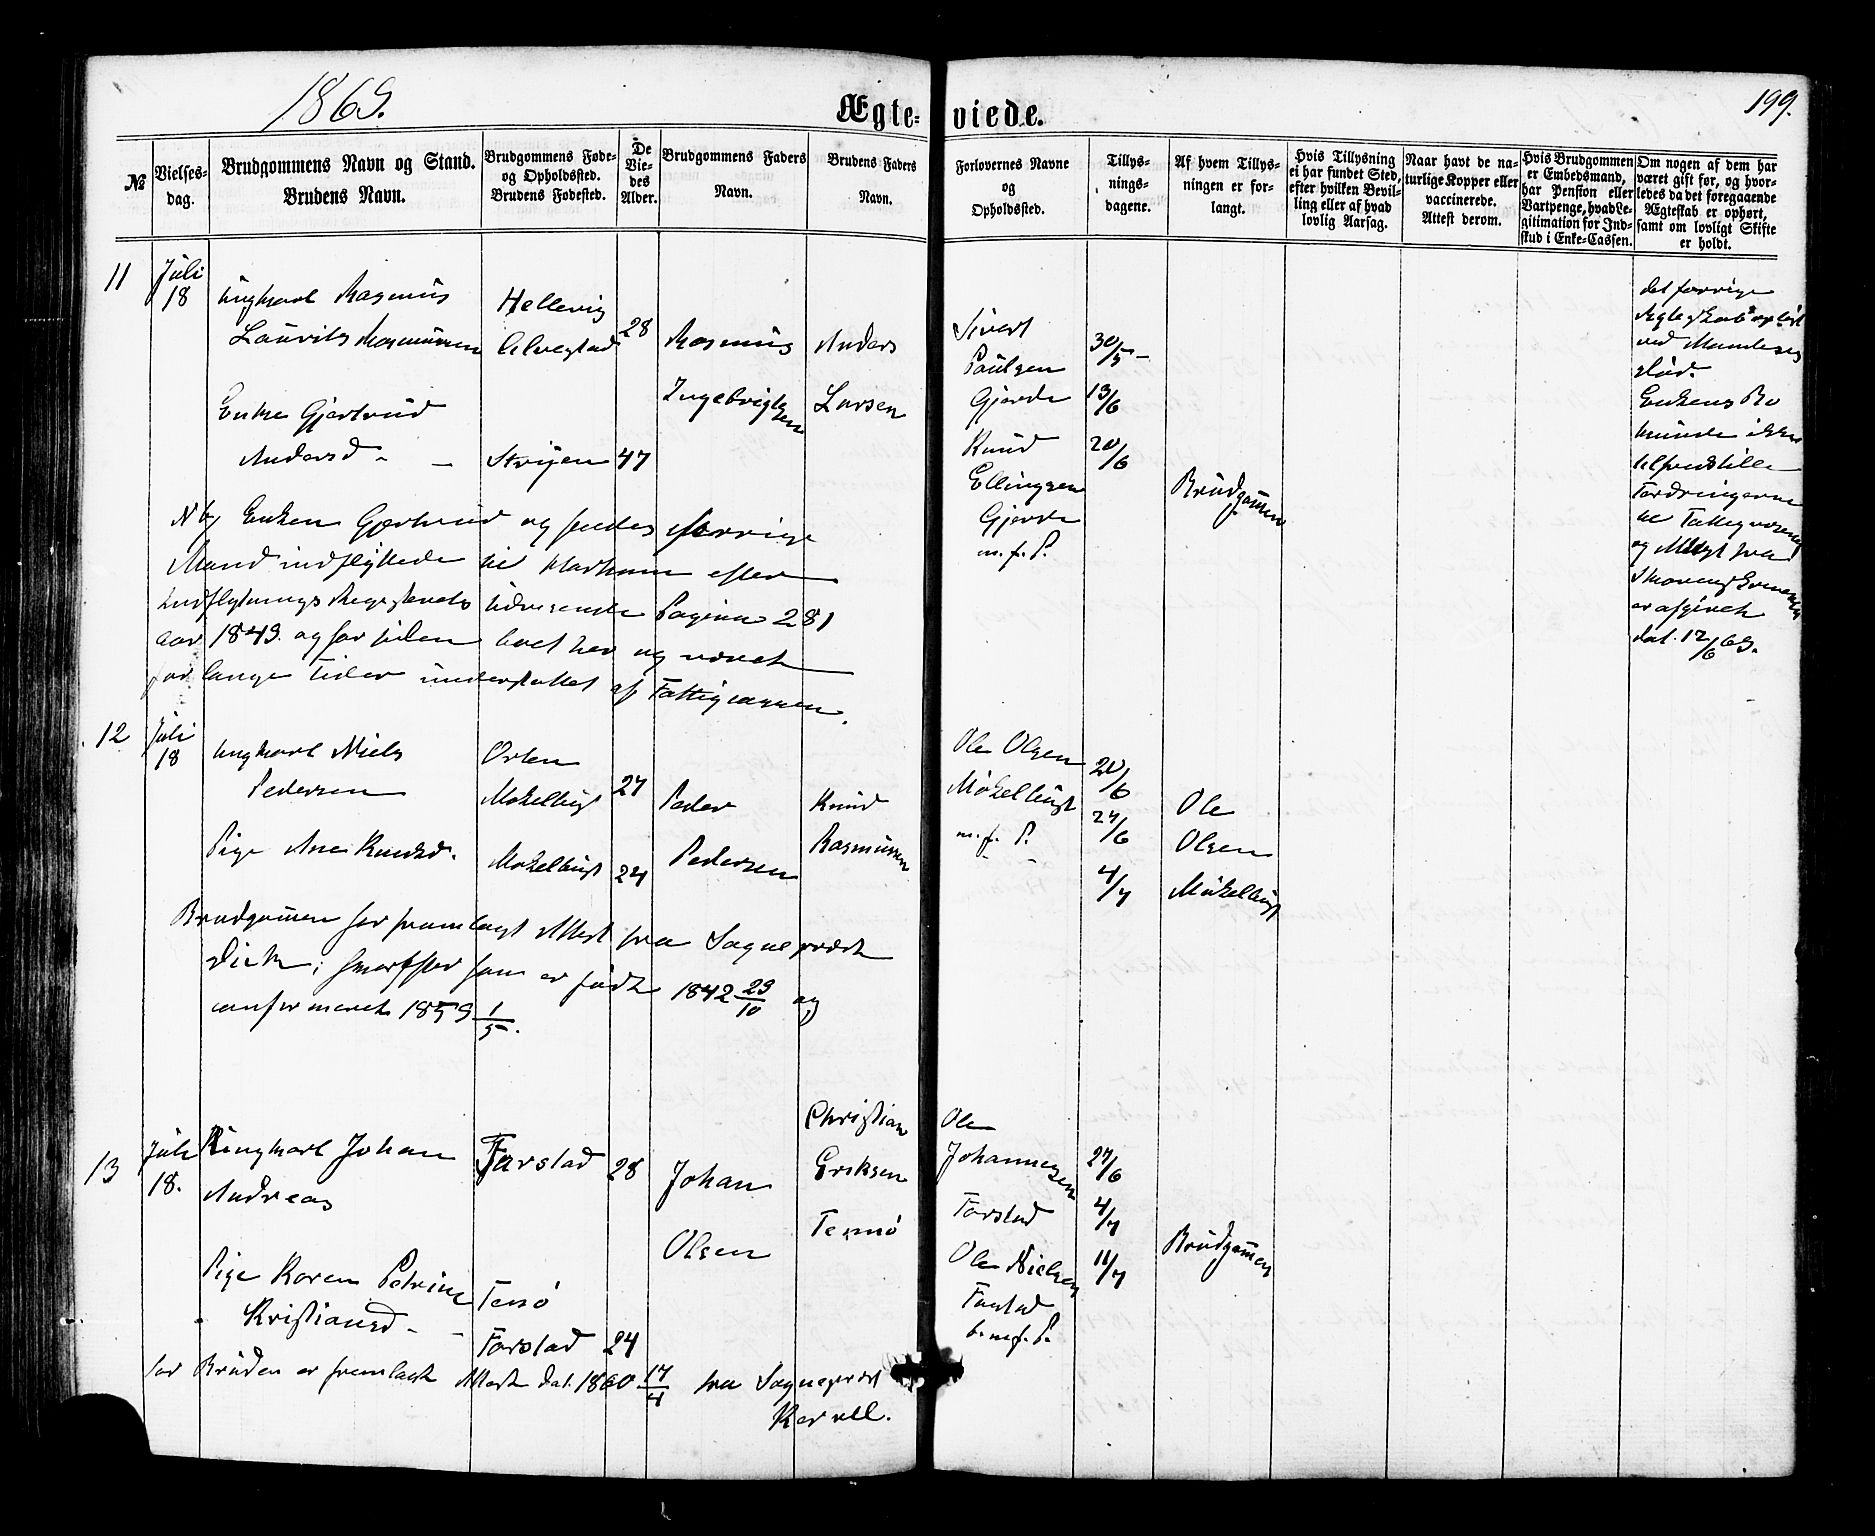 1869.
Ægte- viede.
199.
№
Vielses-
dag.
Brudgommens Navn og Stand.
Brudens Navn.
Brudgommens Føde-
og Opholdssted.
Brudens Fødested.
De
Vie-
des
Alder.
Brudgommens Faders
Navn.
Brudens Faders
Navn.
Forlovernes Navne
og
Opholdssted.
Tillys-
nings-
dagene.
Af hvem Tillys-
ningen er for-
langt.
Hvis Tillysning
ei har fundet Sted,
efter hvilken Bevil-
ling eller af hvad
lovlig Aarsag.
Naar havt de na-
turlige Kopper eller
vaccinerede.
Attest derom.
Hvis Brudgommen
er Embedsmand,
har Pension eller
Vartpenge, hvad Le-
gitimation for Ind-
skud i Enke-Cassen.
Om nogen af dem har
været gift før, og hvor-
ledes da det foregaaende
Ægteskab er ophørt,
samt om lovligt Skifte
er holdt.
11
Juli
18
Ungkarl Rasmus
Laurits Rasmussen
Enke Gjertrud
Andersd -
Hellevig
Alvestad
Stryen
28
47
Rasmus
Ingebrigtsen
Anders
Larsen
Sivert
Paulsen
Gjerde
Knud
Ellingsen
Gjerde
m. f. P.
30/5 -
13/6
20/6
Brudgommen
det forrige
Ægteskab opløst
ved Mandens
død.
Enkens Bo
kunde ikke
tilfredstille
Fordringerne
til Fattigvæsenet
og Attest fra
er afgivet
dat. 12/6 69.
Nb Enken Gjertrud og hendes forrige
Mand indflyttede til Harham efter
Indflytnings Registerets Udvisende Pagina 281
aar 1849. og har siden boet her og været
for lange Tider understøttet af Fattigcassen.
12
Juli
18
Ungkarl Niels
Pedersen
Pige Ane Knudsd.
Orten
Møkelbust
Møkelbust
27
24
Peder
Pedersen
Knud
Rasmussen
Ole Olsen
Møkelbust
m. f. P.
20/6
27/6
4/7
Ole
Olsen
Møkelbust
Brudgommen har fremlagt Attest fra Sogneprest
Dick; han er født 1842 29/10 og
confirmeret 1859 1/5.
13
Juli
18.
Ungkarl Johan
Andreas
Pige Karen Petrine
Kristiansd -
Farstad
Ternø
Farstad
28
24
Johan
Olsen
Christian
Eriksen
Ternø
Ole
Johannesen
Farstad
Ole Nielsen
Farstad
b. m. f. P.
27/6
4/7
11/7
Brudgommen
for Bruden er fremlagt Attest dat. 1860 17/4 fra Sogneprest